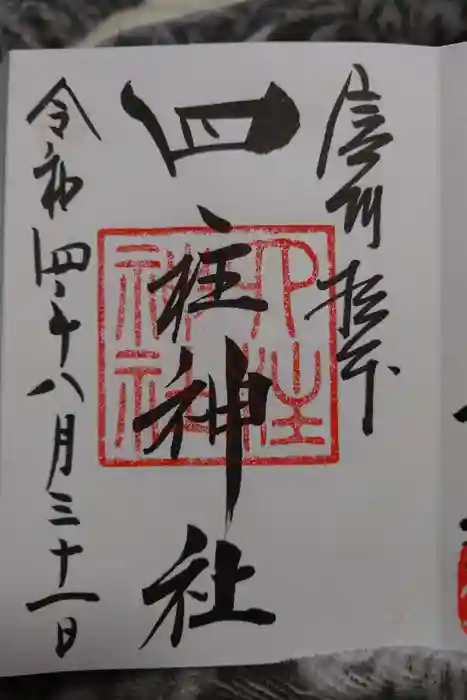 信州 松本
四柱神社
四柱神社
令和四年八月三十一日